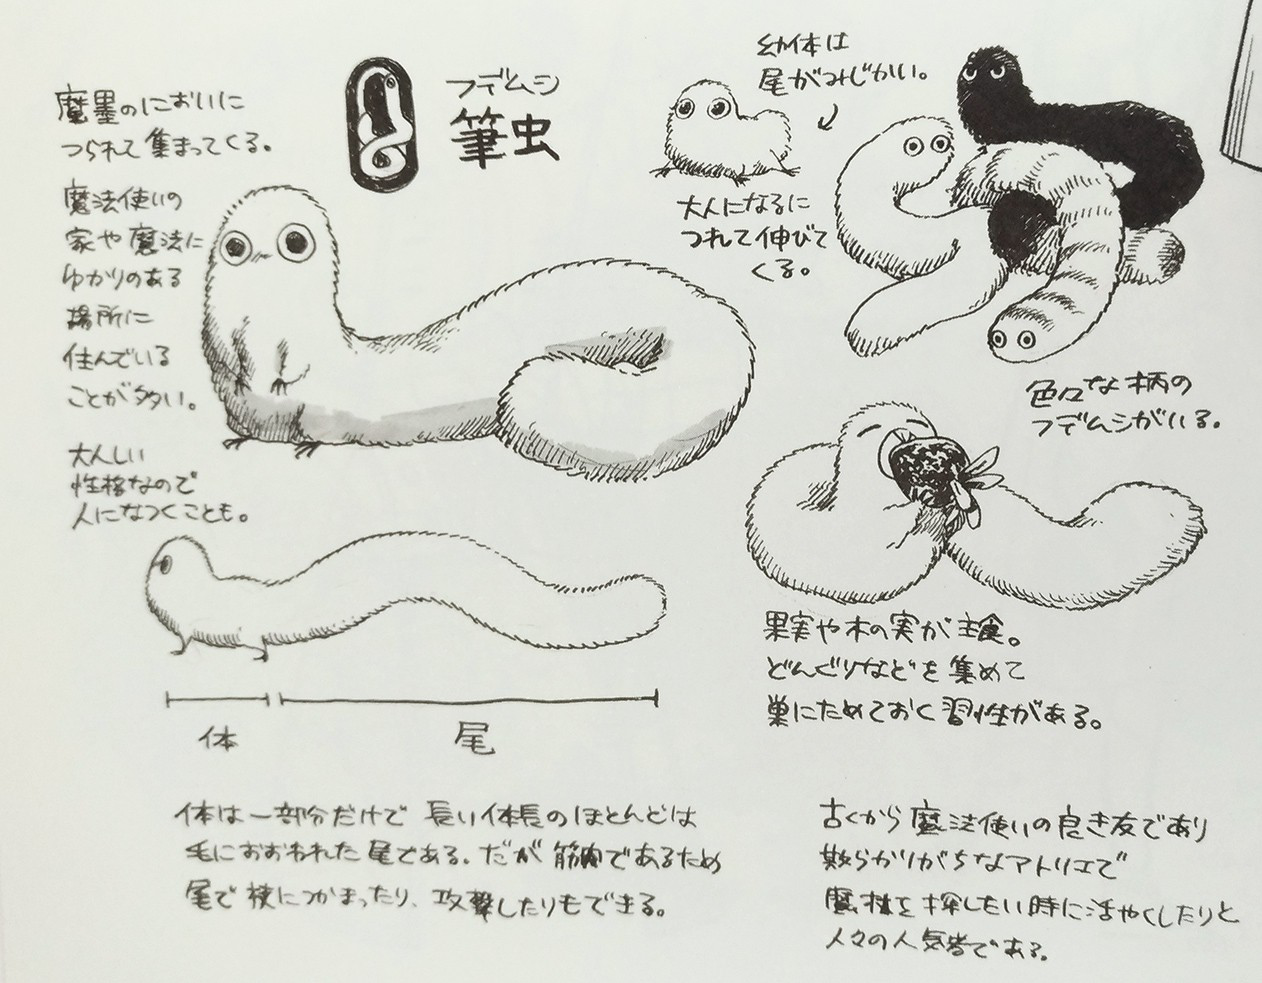 フデムシ
筆虫
魔墨のにおいに
つられて集まってくる。
魔法使いの
家や魔法に
ゆかりのある
場所に
住んでいる
ことが多い。
大人しい
性格なので
人になつくことも。
幼体は
尾がみじかい。
大人になるに
つれて伸びて
くる。
色々な柄の
フデムシがいる。
果実や木の実が主食。
どんぐりなどを集めて
巣にためておく習性がある。
体
尾
体は一部分だけで長い体長のほとんどは
毛におおわれた尾である。だが筋肉であるため
尾で枝につかまったり、攻撃したりもできる。
古くから魔法使いの良き友であり
散らかりがちなアトリエで
魔材を探したい時に活やくしたりと
人々の人気者である。